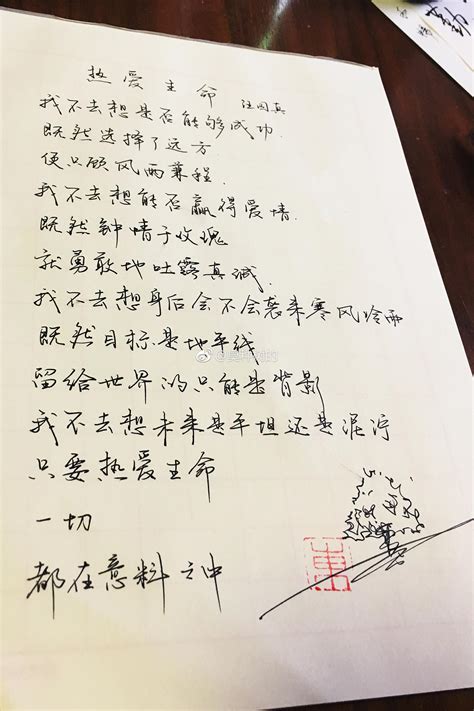 热爱生命 汪国真
我不去想是否能够成功.
既然选择了远方
便只顾风雨兼程.
我不去想能否赢得爱情.
既然钟情于玫瑰
就勇敢地吐露真诚.
我不去想身后会不会袭来寒风冷雨
既然目标是地平线
留给世界的只能是背影
我不去想未来是平坦还是泥泞
只要热爱生命
一切
都在意料之中